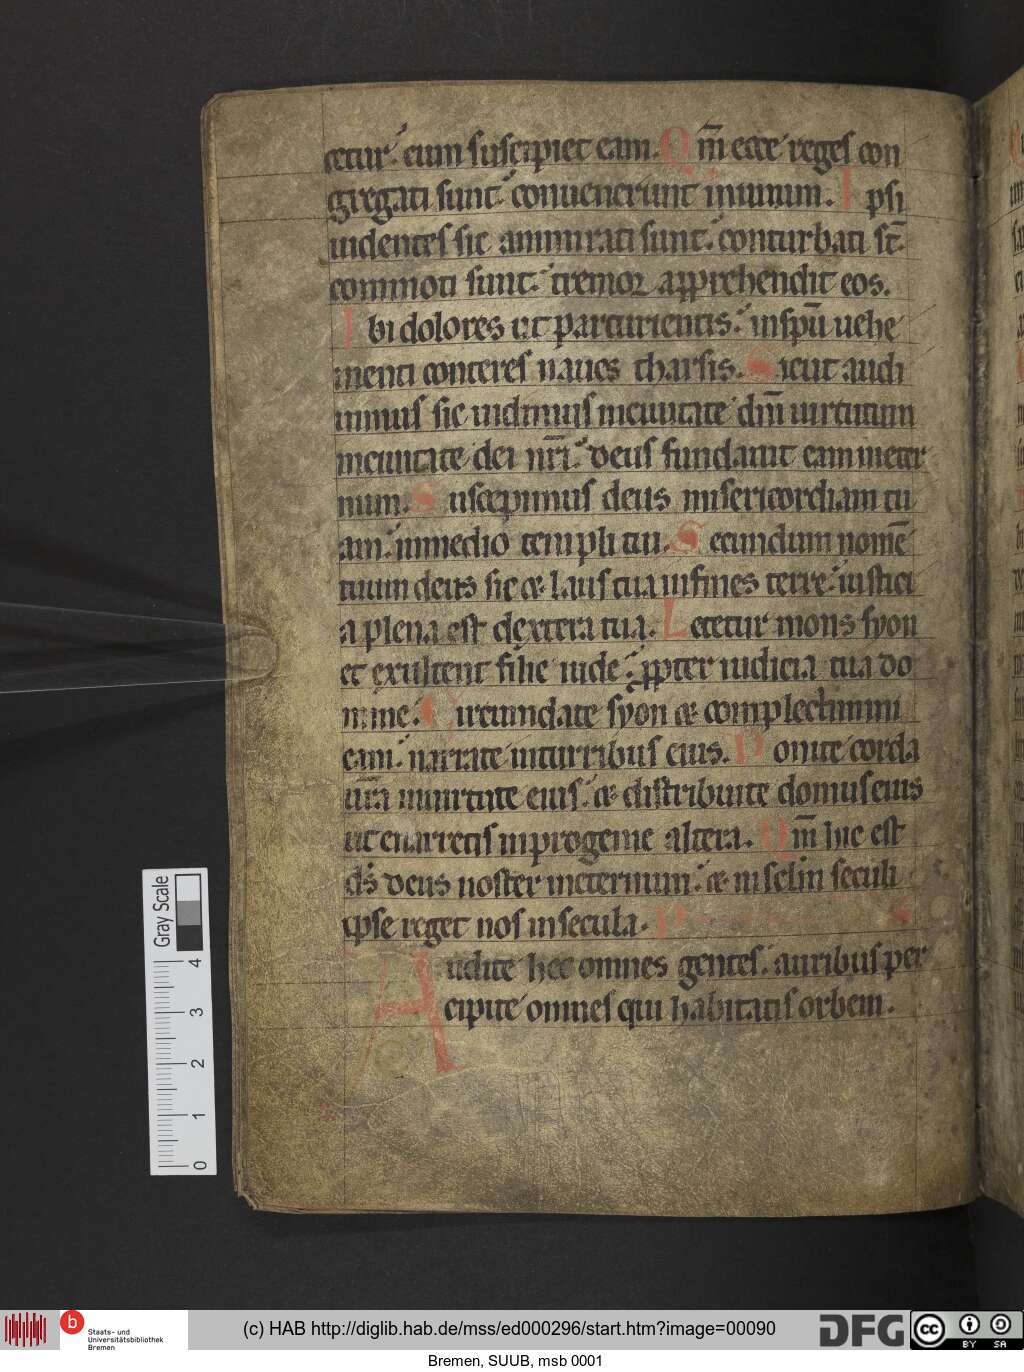 cetur. cum suscipiet eam. Qm̅ ecce reges con
gregati sunt. conuenerunt inunum. Ipsi
uidentes sic ammirati sunt. conturbati st̅.
commoti sunt. tremor apprehendit eos.
Ibi dolores ut parturientis. inspu̅ uehe
menti conteres naues tharsis. Sicut audi
uimus sic uidimus inciuitate dn̅i uirtutum
inciuitate dei nr̅i. deus fundauit eam ineter
num. Suscepimus deus misericordiam tu
am. inmedio templi tui. Secundum nome̅
tuum deus sic & laus tua infines terre. iustici
a plena est dextera tua. Letetur mons syon
et exultent filie iude. ꝓpter iudicia tua do
mine. Circumdate syon & complectimini
eam. narrate inturribus eius. Ponite corda
ur̅a inuirtute eius. & distribuite domus eius
ut enarretis inprogenie altera. Qm̅ hic est
ds̅ deus noster ineternum. & in sc̅lm seculi
ipse reget nos insecula.
Audite hec omnes gentes. auribus per
cipite omnes qui habitatis orbem.
Gray Scale
4
3
2
1
0
b
Staats- und
Universitätsbibliothek
Bremen
(c) HAB http://diglib.hab.de/mss/ed000296/start.htm?image=00090
DFG
cc
BY SA
Bremen, SUUB, msb 0001